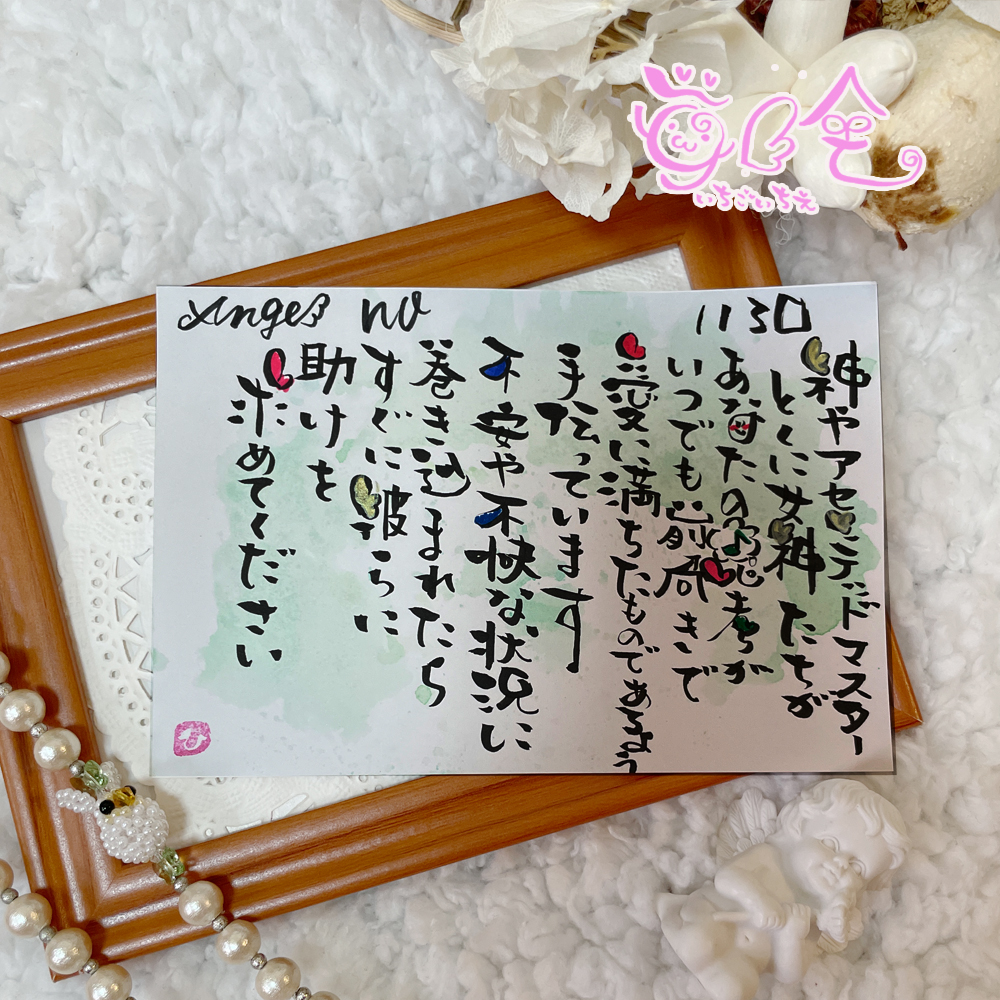 Angel no 1130
神やアセンデッドマスター
とくに女神たちが
あなたの思考が
いつでも前向きで
愛に満ちたものであるよう
手伝っています
不安や不快な状況に
巻き込まれたら
すぐに彼らに
助けを
求めてください
いちごいちえ